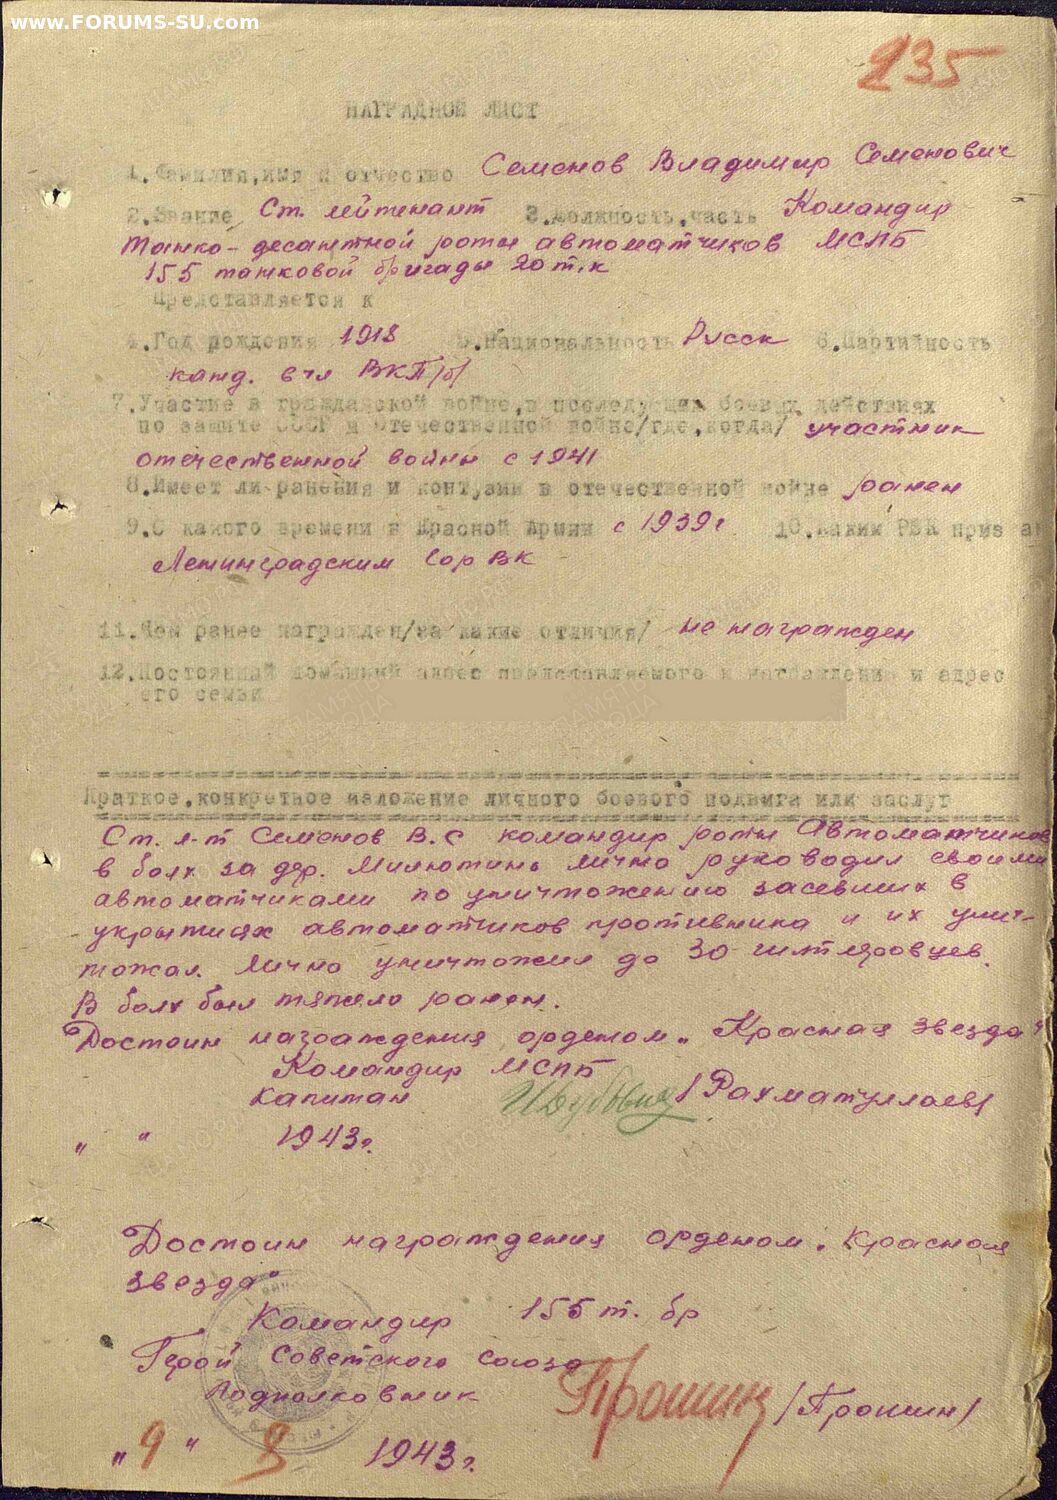 www.FORUMS-SU.com
235
НАГРАДНОЙ ЛИСТ
1.Фамилия,имя и отчество Семенов Владимир Семенович
2.Звание Ст. лейтенант 3.Должность,часть Командир
танко-десантной роты автоматчиков МСПБ
155 танковой бригады 20 т.к
Представляется к
4.Год рождения 1918 5.Национальность Русск 6.Партийность
канд. в чл ВКП/б/
7.Участие в гражданской войне,в последующих боевых действиях
по защите СССР и Отечественной войне/где,когда/ участник
отечественной войны с 1941
8.Имеет ли ранения и контузии в отечественной войне ранен
9.С какого времени в Красной Армии с 1939г 10.Каким РВК призван
Ленинградским Гор ВК
11.Чем ранее награжден/за какие отличия/ не награжден
12.Постоянный домашний адрес представляемого к награждению и адрес
его семьи
Краткое,конкретное изложение личного боевого подвига или заслуг
Ст. л-т Семенов В.С командир роты Автоматчиков
в боях за дер. Милютино лично руководил своими
автоматчиками по уничтожению засевших в
укрытиях автоматчиков противника и их унич-
тожал. Лично уничтожил до 30 гитлеровцев.
В боях был тяжело ранен.
Достоин награждения орденом „Красная звезда"
Командир МСПБ
Капитан /Рахматуллаев/
„ " 1943г.
Достоин награждения орденом „Красная
звезда"
Командир 155 т. бр
Герой Советского Союза
Подполковник Прошин /Прошин/
„9" 8 1943г.